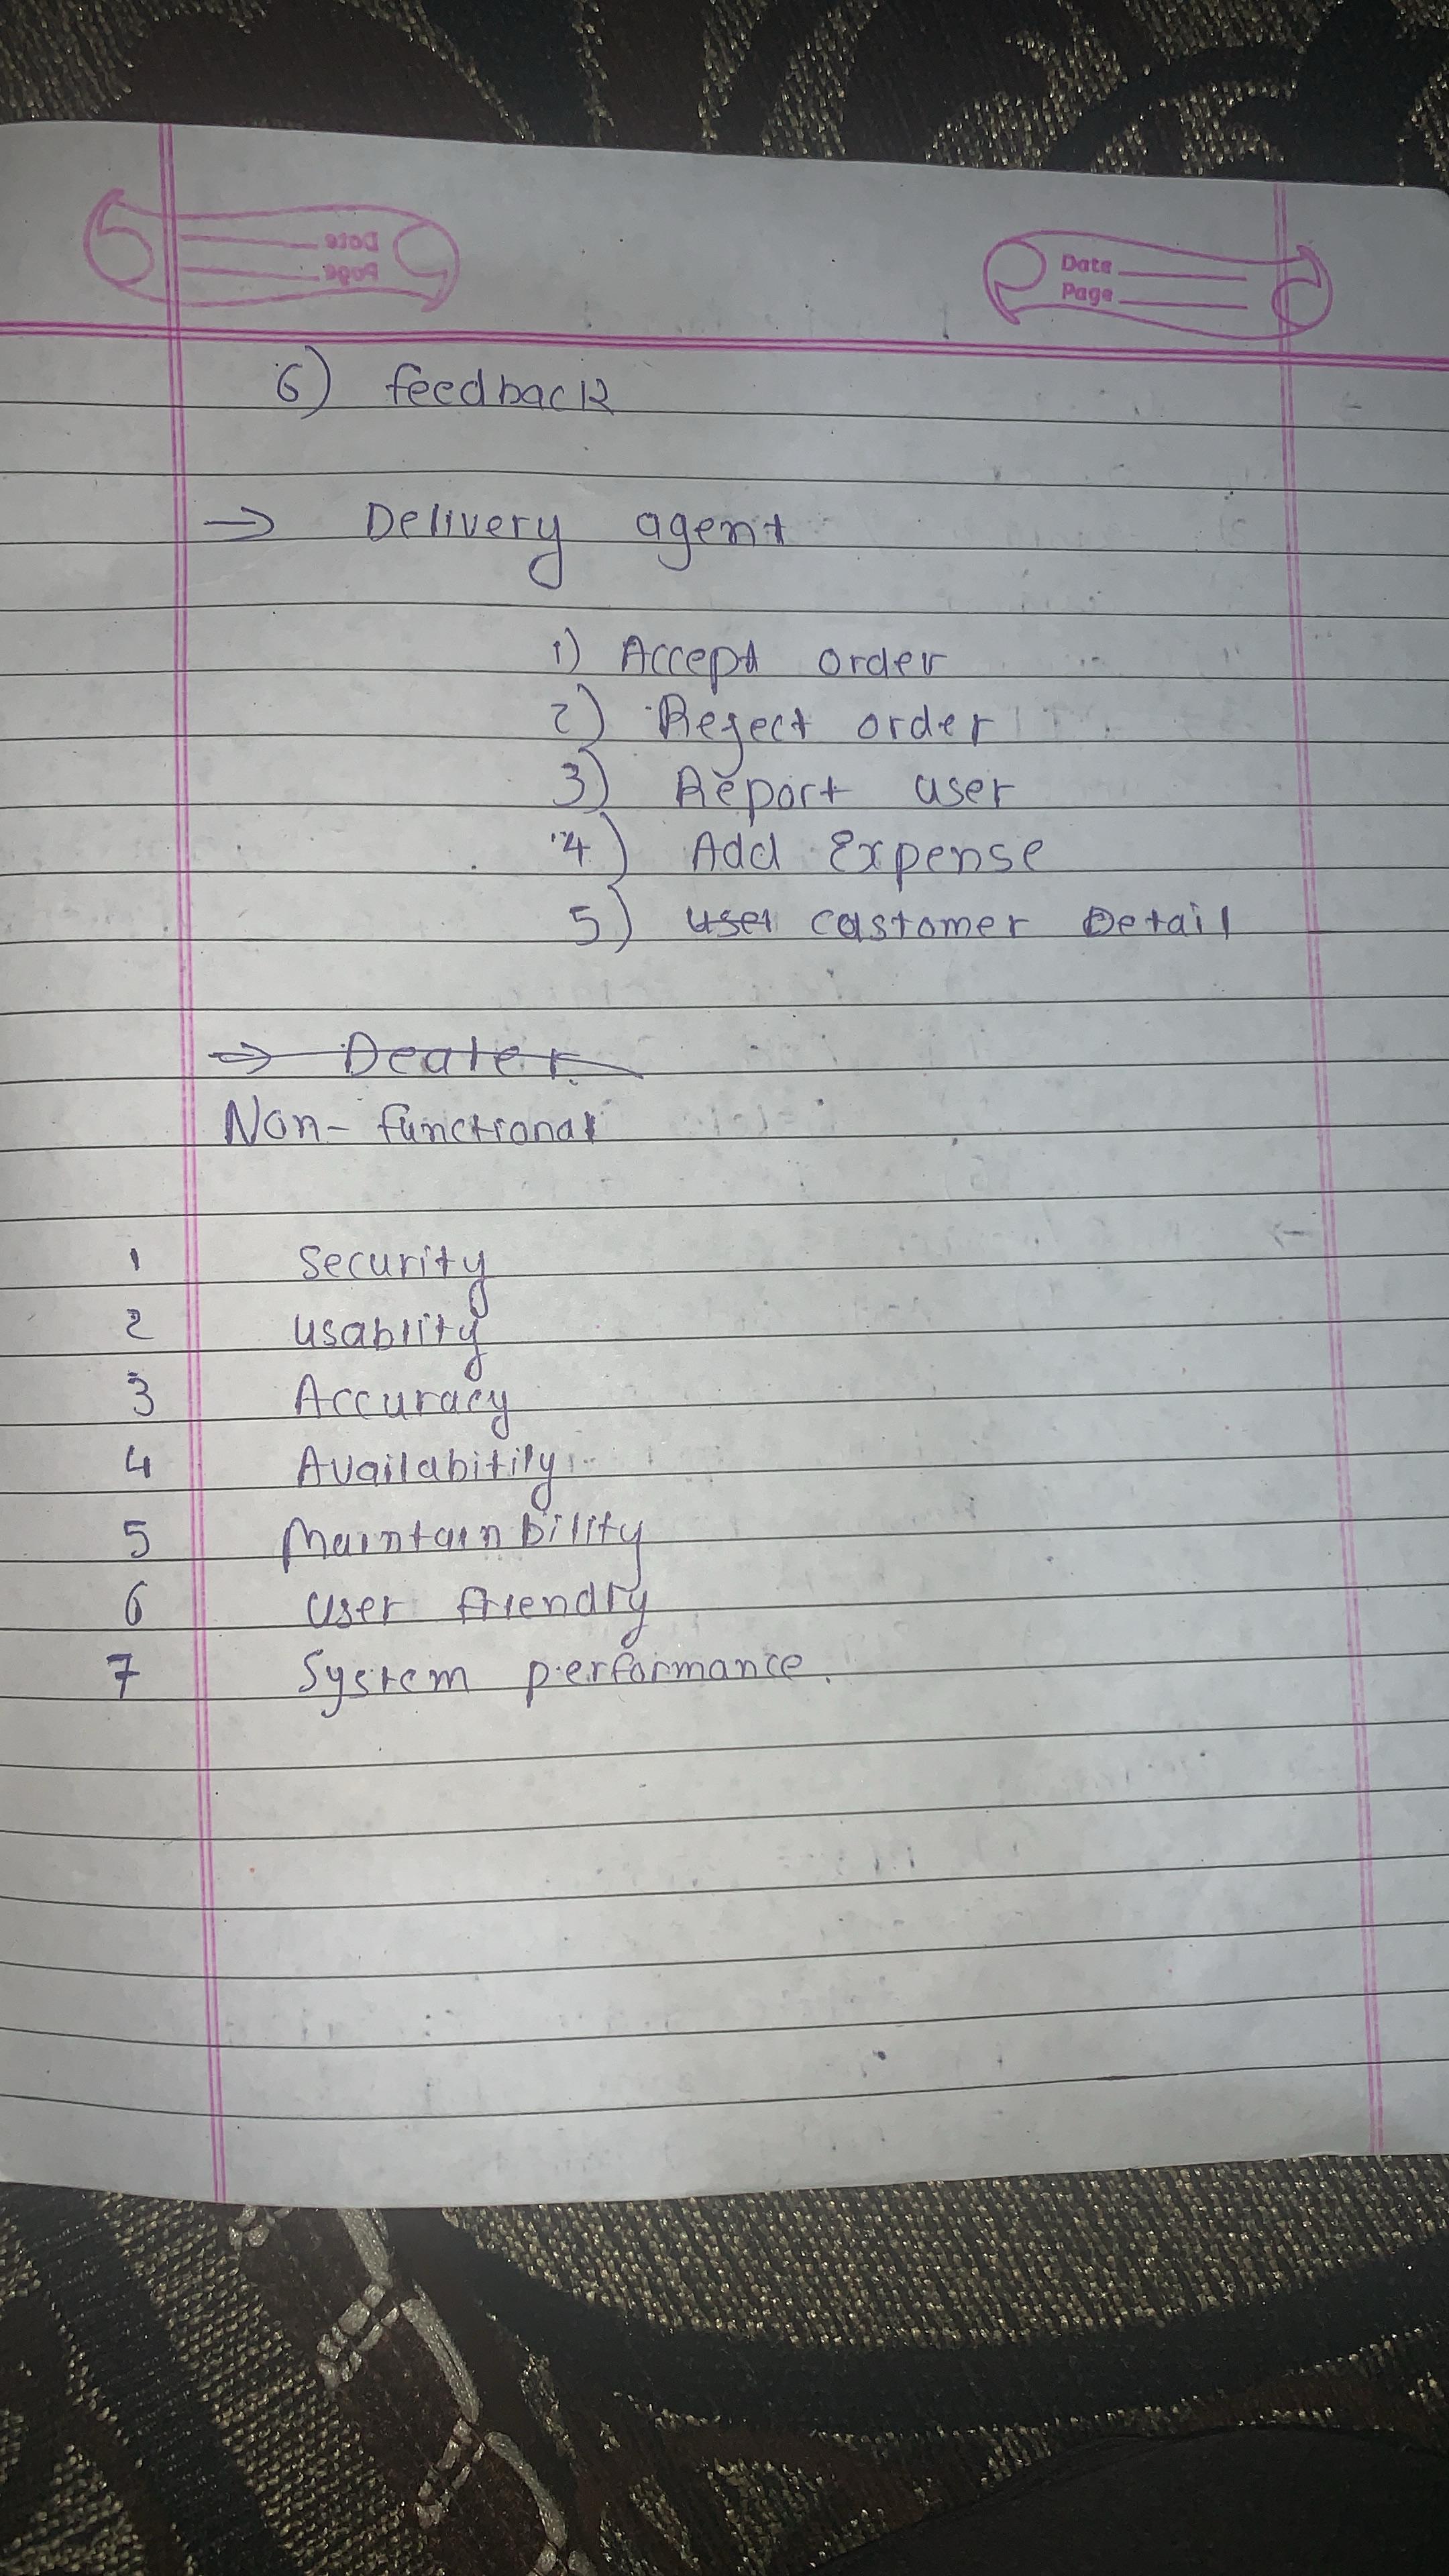 Date
Page
Date
Page
6) feedback
→ Delivery agent
1) Accept order
2) Reject order
3) Report user
4) Add Expense
5) user castomer Detail
→ Dealer
Non- functional
1 Security
2 usablity
3 Accuracy
4 Availabitily
5 Maintainbility
6 User friendly
7 System performance.